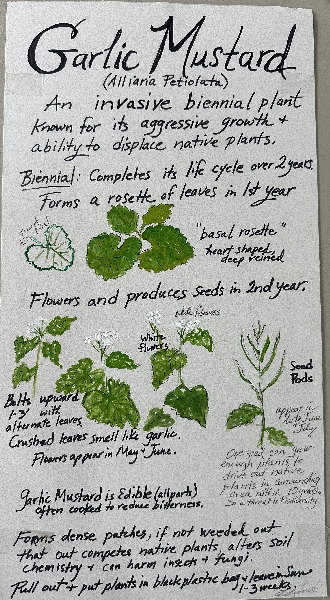 Garlic Mustard
(Alliaria Petiolata)
An invasive biennial plant
known for its aggressive growth +
ability to displace native plants.
Biennial: Completes its life cycle over 2 years.
Forms a rosette of leaves in 1st year
"basal rosette"
heart shaped,
deep veined
Flowers and produces seeds in 2nd year.
White
flowers
Seed
Pods
Bolts upward
1-3' with
alternate leaves
Crushed leaves smell like garlic.
Flowers appear in May + June.
appear in
June
July
One
enough plants to
drive out native
plants in surrounding
area
Garlic Mustard is Edible (all parts)
often cooked to reduce bitterness.
Forms dense patches, if not weeded out
that out competes native plants, alters soil
chemistry + can harm insects + fungi.
Pull out + put plants in black plastic bag + leave in Sun
1-3 weeks.